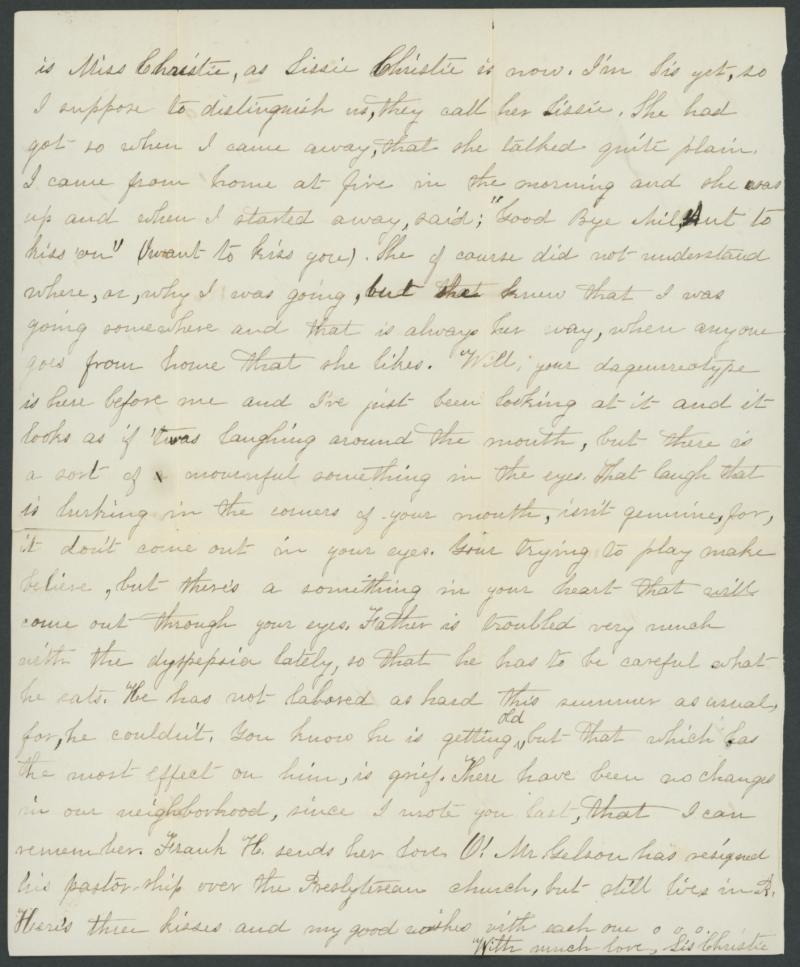 is Miss Christie, as Sissie Christie is now. I'm Sis yet, so
I suppose to distinguish us, they call her Sissie. She had
got so when I came away, that she talked quite plain.
I came from home at five in the morning and she was
up and when I started away, said; "Good Bye to
kiss 'ou" (I want to kiss you). She of course did not understand
where, or, why I was going, but she knew that I was
going somewhere and that is always her way, when anyone
goes from home that she likes. Will, your daguerreotype
is here before me and I've just been looking at it and it
looks as if 'twas laughing around the mouth, but there is
a sort of mournful something in the eyes. That laugh that
is lurking in the corners of your mouth, isn't genuine, for,
it don't come out in your eyes. Your trying to play make
believe, but there's a something in your heart that will
come out through your eyes. Father is troubled very much
with the dyspepsia lately, so that he has to be careful what
he eats. He has not labored as hard this summer as usual,
for, he couldn't. You know he is getting old, but that which has
the most effect on him, is grief. There have been no changes
in our neighborhood, since I wrote you last, that I can
remember. Frank H. sends her love. O! Mr. Gelson has resigned
his pastor-ship over the Presbyterean church, but still lives in R.
Here's three kisses and my good wishes with each one o o o.
With much love, Sis Christie